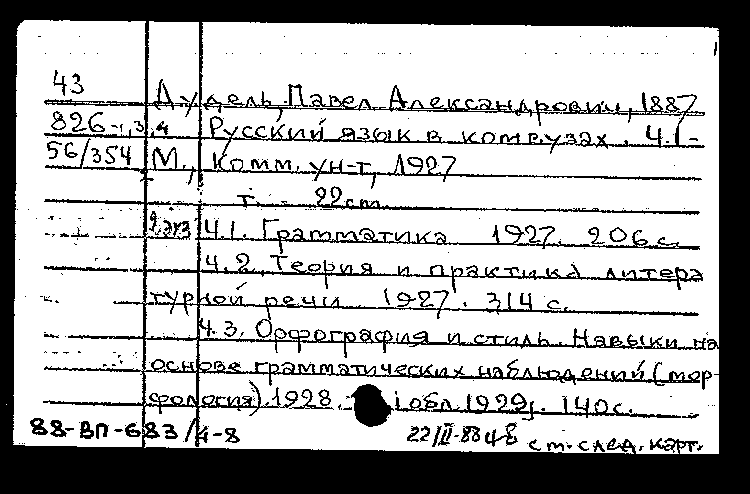 43 Дудель, Павел Александрович, 1887
826-1,3,4 Русский язык в комвузах. Ч.1-
56/354 М., Комм. ун-т, 1927
т. 22 cm.
2 экз Ч.1. Грамматика 1927. 206 с.
Ч.2. Теория и практика литера
турной речи 1927. 314 с.
Ч.3. Орфография и стиль. Навыки на
основе грамматических наблюдений (мор-
фология). 1928. обл. 1929. 140 с.
88-ВП-683/4-8 22/II-88 см. след. карт.